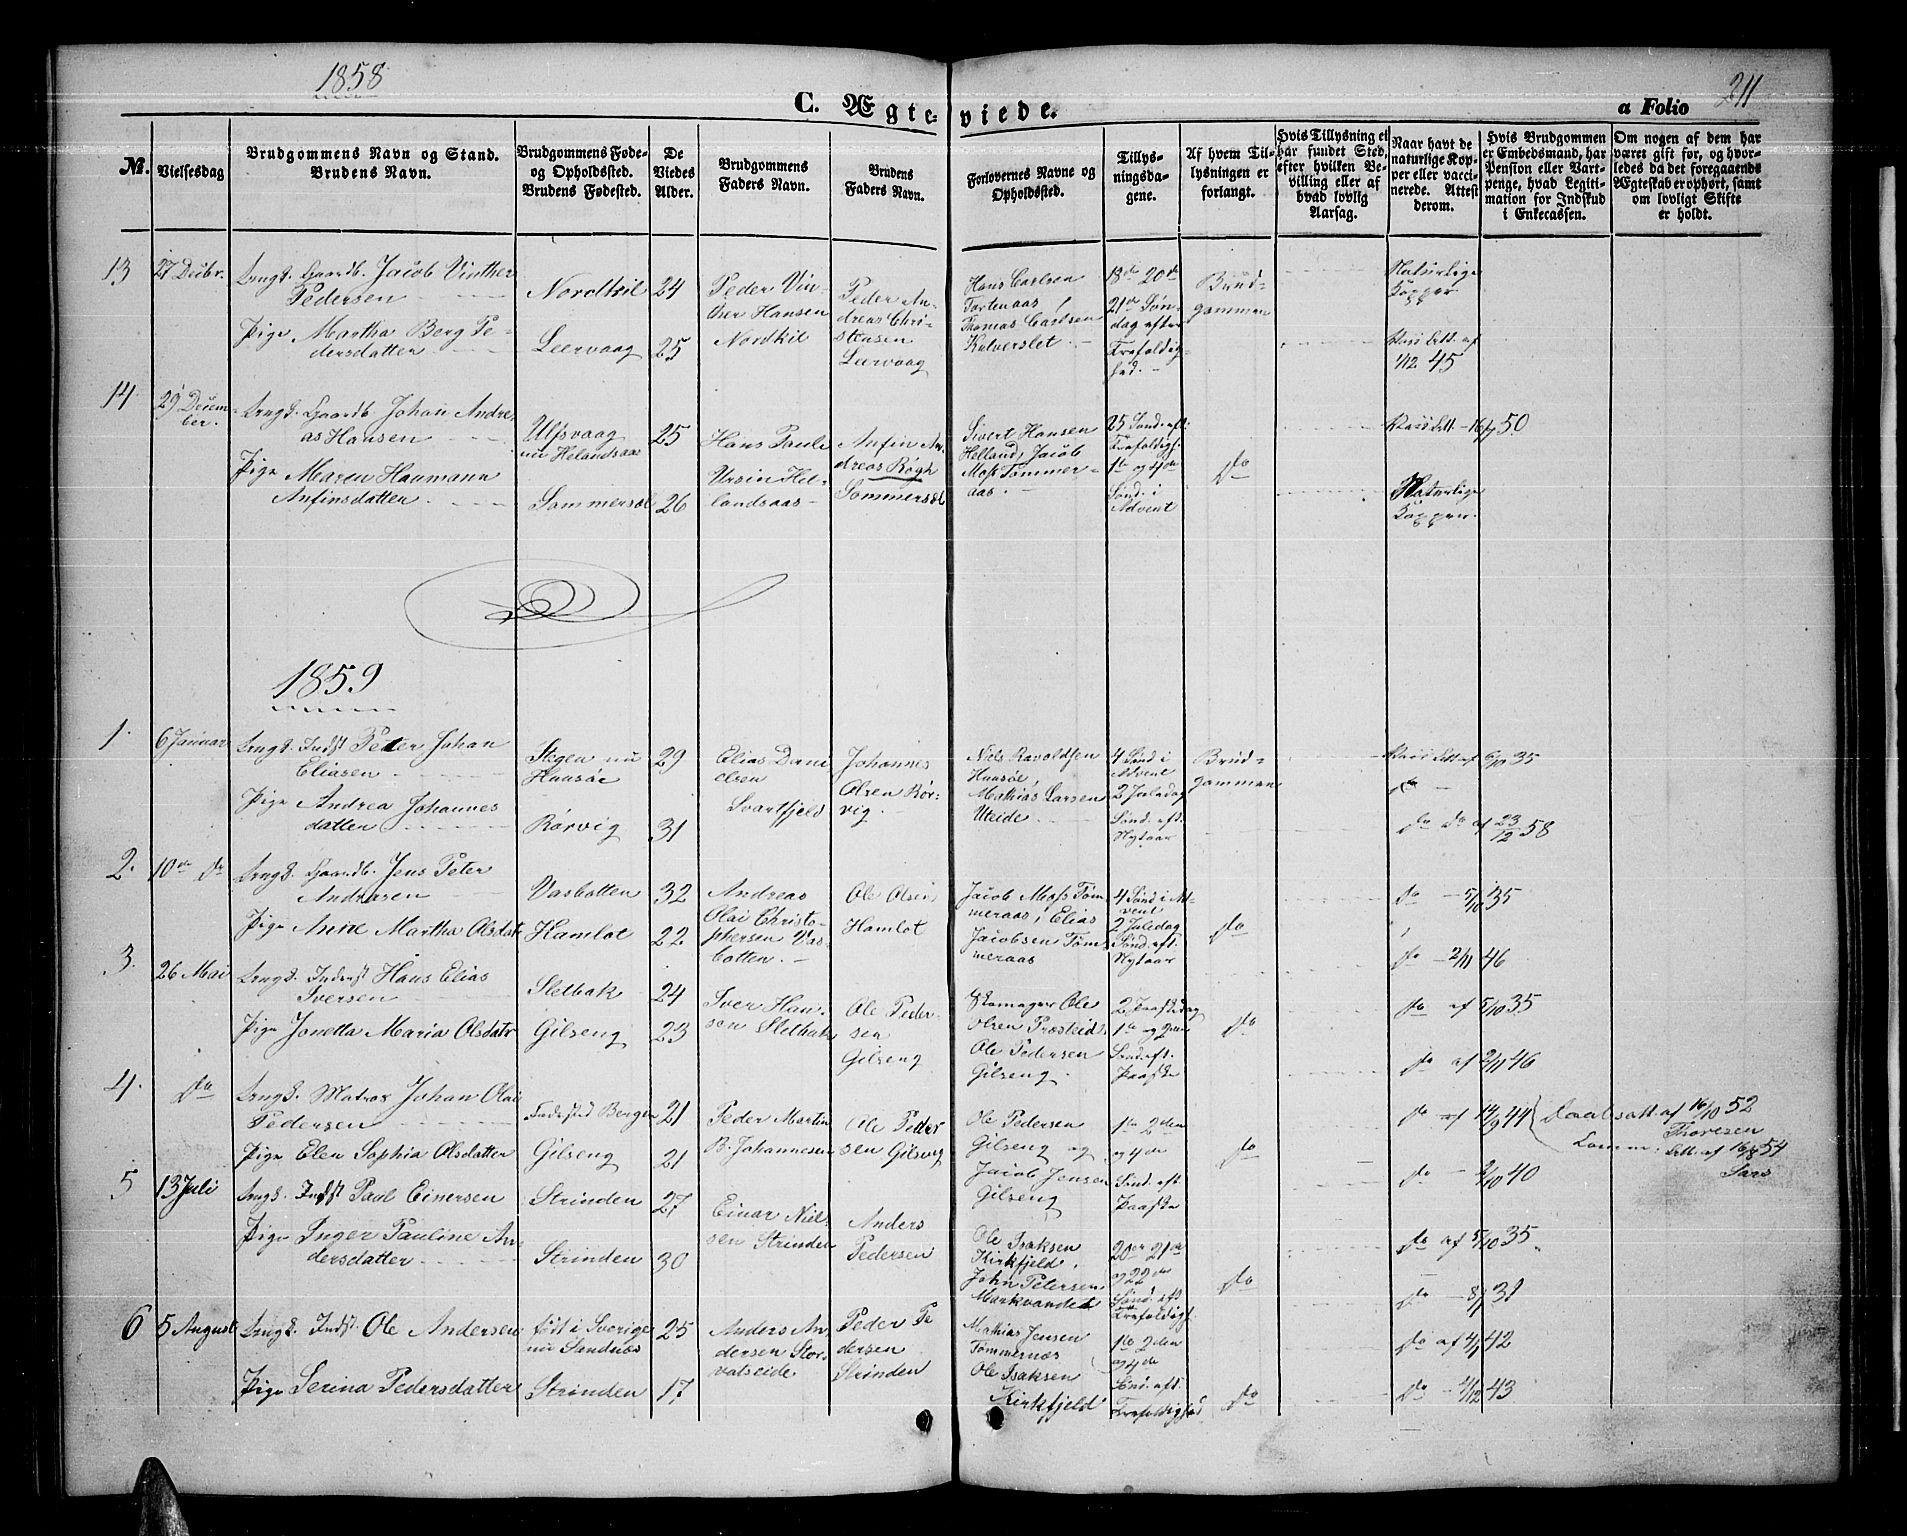 1858
211
C. Ægteviede.
a Folio
No.
Vielsesdag
Brudgommens Navn og Stand.
Brudens Navn.
Brudgommens Føde-
og Opholdssted.
Brudens Fødested.
De
Viedes
Alder.
Brudgommens
Faders Navn.
Brudens
Faders Navn.
Forlovernes Navne og
Opholdssted.
Tillys-
ningsda-
gene.
Af hvem Til-
lysningen er
forlangt.
Hvis Tillysning ei
har fundet Sted,
efter hvilken Be-
villing eller af
hvad lovlig
Aarsag.
Naar havt de
naturlige Kop-
per eller vacci-
nerede. Attest
derom.
Hvis Brudgommen
er Embedsmand, har
Pension eller Vart-
penge, hvad Legiti-
mation for Indskud
i Enkecassen.
Om nogen af dem har
været gift før, og hvor-
ledes da det foregaaende
Ægteskab er ophørt, samt
om lovligt Skifte
er holdt.
13 27 Decbr.
Ungk. Gaardb. Jacob Vinther
Pedersen
Nordkil 24
Peder Vin-
ther Hansen
Nordkil
Peder An-
dreas Chri-
stensen
Leervaag
Hans Carlsen
Tortenaas
Thomas Carlsen
Kalverslet
18de 20de
21de Søn-
dag efter
Trefoldig-
hed.
Brud-
gommen
Naturlige
Kopper.
Pige Martha Berg Pe-
dersdatter
Leervaag 25
Vacc. Att. af
1/12 45
14 29 Decem-
ber.
Ungk. Gaardb. Johan Andre-
as Hansen
Ulfsvaag
nu Helandsaas
25
Hans Paul
Ursin Hel-
landsaas
Anfin An-
dreas Røgh
Sommersæl
Sivert Hansen
Helland, Jacob
Moss Tømmer-
aas.
25 Sønd. eft.
Trefoldigh.
1te og 4de
Sønd. i
Advent
Do
Vacc. Att. 16/7 50
Pige Maren Haumann
Anfinsdatter
Sommersæl 26
Naturlige
Kopper.
1859
1. 6 Januar
Ungk. Indst Peter Johan
Eliasen
Stegen nu
Haasøe
29
Elias Dani
elsen
Svartfjeld
Johannes
Olsen Rør-
vig.
Niels Ravaldsen
Haasøe,
Mathias Larsen
Uteide
4 Sønd i
Advent
2 Juledag
Sønd. eft.
Nytaar
Brud-
gommen
Vacc. Att. af 6/10 35
Do
Pige Andrea Johannes
datter
Rørvig 31
Do Do af 23/12 58
2. 10de Do
Ungk. Gaardb. Jens Peter
Andreasen
Vasbotten 32
Andreas
Olai Christo-
phersen Vas-
botten.
Ole Olsen
Hamlot
Jacob Moss Tøm-
meraas, Elias
Jacobsen Tøm-
meraas
4 Sønd i Ad-
vent
2 Juledag
Sønd. eft.
Nytaar
Do
Do 5/10 35
Pige Anne Martha Olsdatr
Hamlot 22
Do 2/11 46
3. 26 Mai
Ungk. Inderst Hans Elias
Iversen
Sletbak 24
Iver Han-
sen Sletbak
Ole Peder-
sen
Gilseng
Skomager Ole
Olsen Præsteid,
Ole Pedersen
Gilseng.
2 Paaskedag
1te og 2den
Sønd. eft.
Paaske
Do
Do af 5/10 35
Pige Jonetta Maria Olsdatr
Gilseng 23
Do af 2/11 46
4. Do
Ungk. Matros Johan Olai
Pedersen
Fødested Bergen 21
Peder Martin
B. Johannesen
Ole Peder
sen Gilsvig
Ole Pedersen
Gilseng og
Jacob Jensen
Gilseng
1te 2den
og 4de
Sønd. eft
Paaske
Do
Do af 14/9 44
Daabsatt. af 16/10 52
Thoresen
Comm: Att. af 16/8 54
Sars
Pige Elen Sophia Olsdatter
Gilseng 21
Do 2/10 40
5 13 Juli
Ungk. Indst Paul Einersen
Strinden 27
Einar Niel-
sen Strinden
Anders
Pedersen
Ole Isaksen
Kirkfjeld,
John Petersen
Markvandet
20de 21de
og 22de
Sønd. eft
Trefoldigh.
Do
Do af 5/10 35
Pige Inger Pauline An-
dersdatter
Strinden 30
Do 8/7 31
6 5 August
Ungk. Indst. Ole Andersen
født i Sverige
nu Sandnæs
25
Anders An-
dersen Stor-
vatseide
Peder Pe
dersen
Strinden
Mathias Jensen
Tømmernæs
Ole Isaksen
Kirkfjeld
1te 2den
og 4de
Sønd. eft.
Trefoldighed
Do
Do af 4/7 42
Pige Serina Pedersdatter
Strinden 17
Do 4/12 43